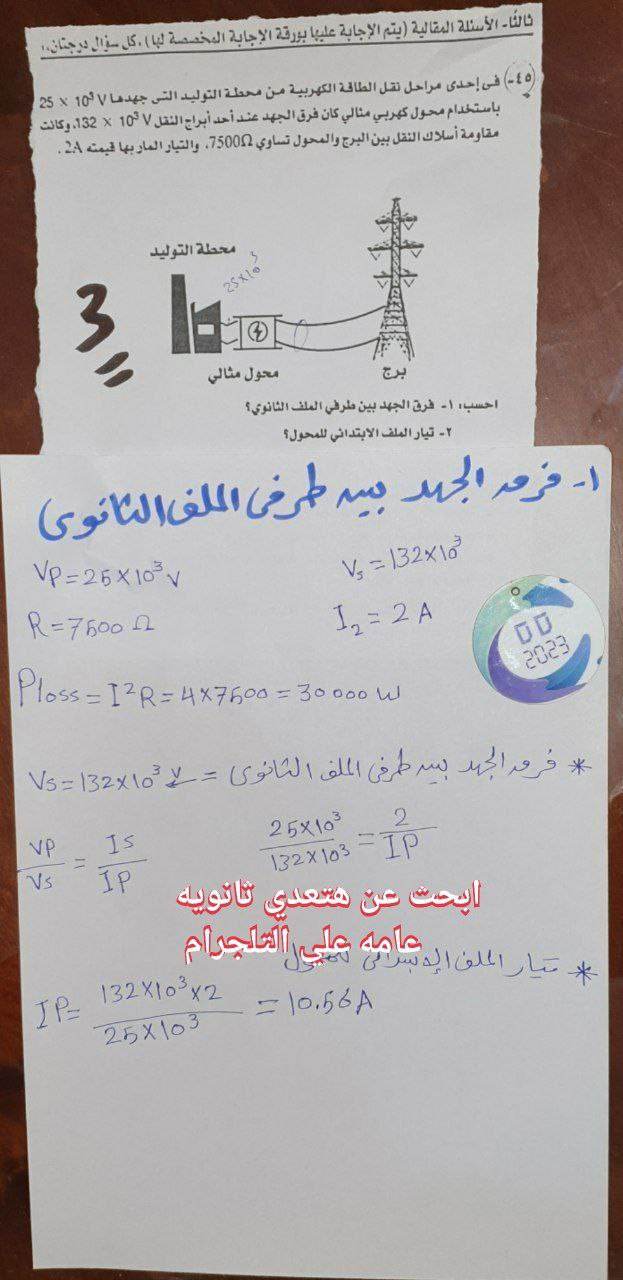 ثالثًا- الأسئلة المقالية (يتم الإجابة عليها بورقة الإجابة المخصصة لها)، كل سؤال درجتان.
٤٥- فى إحدى مراحل نقل الطاقة الكهربية من محطة التوليد التى جهدها 25 × 10³ V
باستخدام محول كهربي مثالي كان فرق الجهد عند أحد أبراج النقل 132 × 10³ V، وكانت
مقاومة أسلاك النقل بين البرج والمحول تساوي 7500Ω، والتيار المار بها قيمته 2A .
محطة التوليد
25×10³
محول مثالي
برج
3
احسب: ١- فرق الجهد بين طرفي الملف الثانوي؟
٢- تيار الملف الابتدائي للمحول؟
١- فرق الجهد بين طرفى الملف الثانوى
Vp=25×10³ V
Vs=132×10³
R=7500 Ω
I₂=2 A
00
2023
Ploss=I²R=4×7500=30000 W
* فرق الجهد بين طرفى الملف الثانوى = Vs=132×10³ V
Vp/Vs = Is/Ip
25×10³/132×10³ = 2/Ip
ابحث عن هتعدي ثانويه
عامه علي التلجرام
* تيار الملف الإبتدائى للمحول
Ip= 132×10³×2/25×10³ = 10.56A